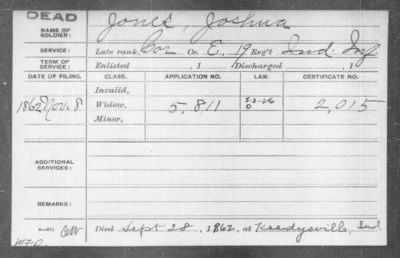 DEAD
NAME OF SOLDIER: Jones, Joshua
SERVICE: Late rank, Cor Co. E, 19 Reg't Ind. Inf
TERM OF SERVICE: Enlisted , 1 Discharged , 1
DATE OF FILING. CLASS. APPLICATION NO. LAW. CERTIFICATE NO.
Invalid,
1862 Nov. 8 Widow, 5,811 2,015
Minor,
ADDITIONAL SERVICES:
REMARKS:
Died Sept 28, 1862, at Keedysville,